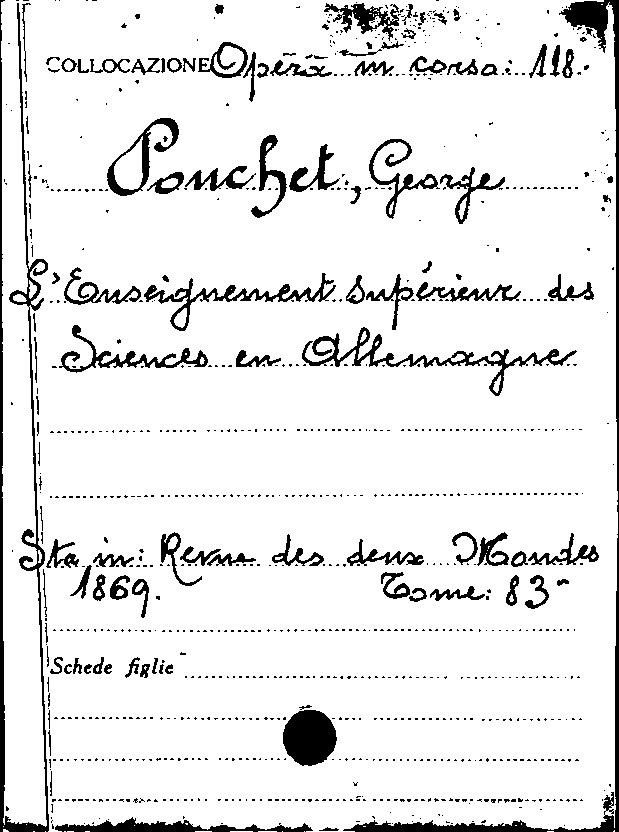 COLLOCAZIONE Opera in corso: 118.
Pouchet, George
L'Enseignement supérieur des
Sciences en Allemagne
Sta in: Revue des deux Mondes
1869. Tome: 83
Schede figlie